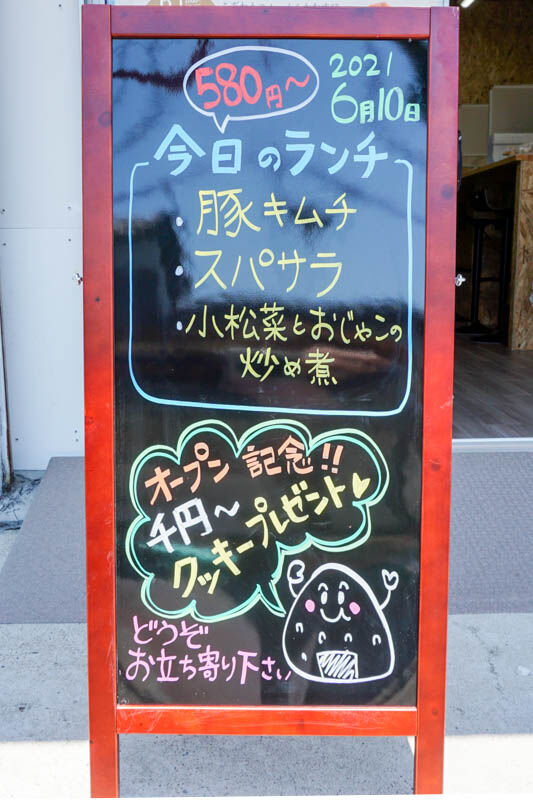 580円～
2021
6月10日
今日のランチ
・豚キムチ
・スパサラ
・小松菜とおじゃこの
炒め煮
オープン 記念!!
千円～
クッキープレゼント♥
どうぞ
お立ち寄り下さい